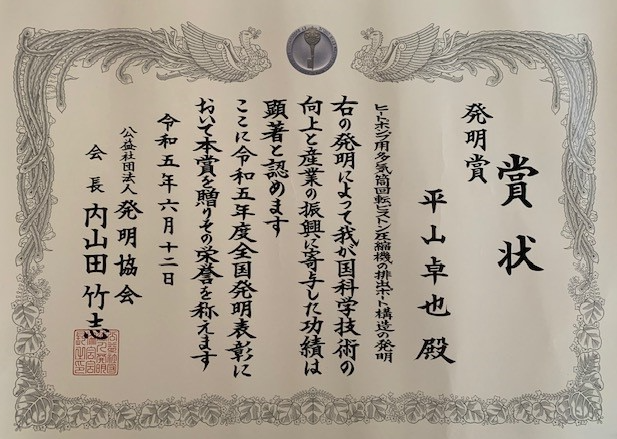 賞状
発明賞
平山卓也殿
ヒートポンプ用多気筒回転ピストン圧縮機の排出ポート構造の発明
右の発明によって我が国科学技術の
向上と産業の振興に寄与した功績は
顕著と認めます
ここに令和五年度全国発明表彰に
おいて本賞を贈りその栄誉を称えます
令和五年六月十二日
公益社団法人 発明協会
会長 内山田竹志